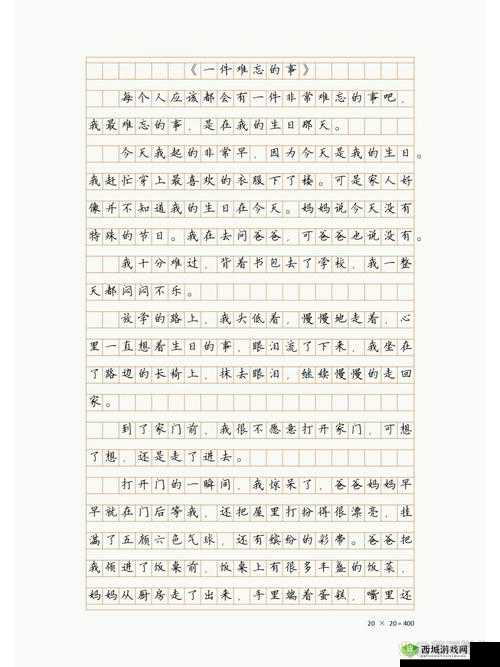 《一件难忘的事》
每个人应该都会有一件非常难忘的事吧，
我最难忘的事，是在我的生日那天。
今天我起的非常早，因为今天是我的生日。
我赶忙穿上最喜欢的衣服下了楼。可是家人好
像并不知道我的生日在今天。妈妈说今天没有
特殊的节日。我在去问爸爸，可爸爸也说没有。
我十分难过，背着书包去了学校，我一整
天都闷闷不乐。
放学的路上，我头低着，慢慢地走着，心
里一直想着生日的事，眼泪流了下来，我坐在
了路边的长椅上，抹去眼泪，继续慢慢的走回
家。
到了家门前，我很不愿意打开家门，可想
了想，还是走了进去。
打开门的一瞬间，我惊呆了，爸爸妈妈早
早就在门后等我，还把屋里打扮得很漂亮，挂
满了五颜六色气球，还有缤纷的彩带。爸爸把
我领进了饭桌前，饭桌上有很多丰盛的饭菜，
妈妈从厨房走了出来，手里端着蛋糕，嘴里还
20 × 20=400
西城游戏网